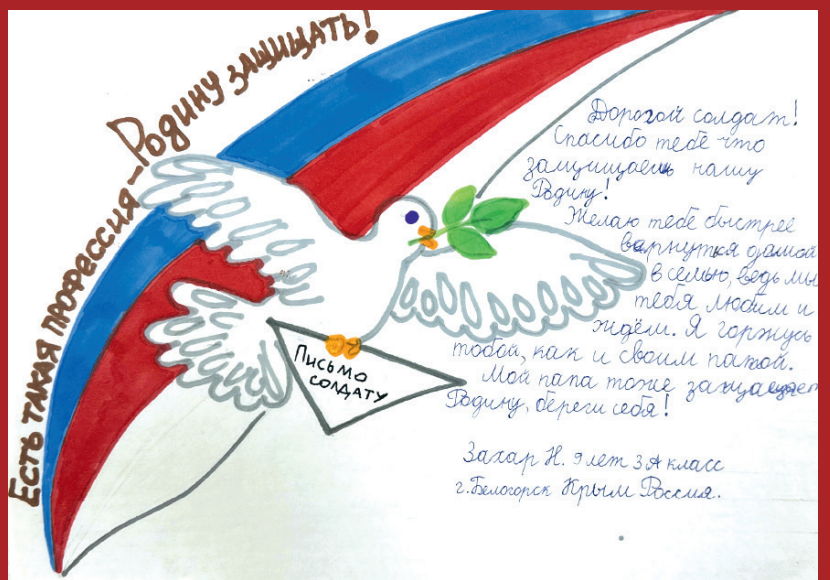 Есть такая профессия - Родину защищать!
Дорогой солдат!
Спасибо тебе что
защищаешь нашу
Родину!
Желаю тебе быстрее
вернуться домой
в семью, ведь мы
тебя любим и
ждём. Я горжусь
тобой, как и своим папой.
Мой папа тоже защищает
Родину, береги себя!
Письмо
солдату
Захар Н. 9 лет 3 А класс
г. Белогорск Крым Россия.